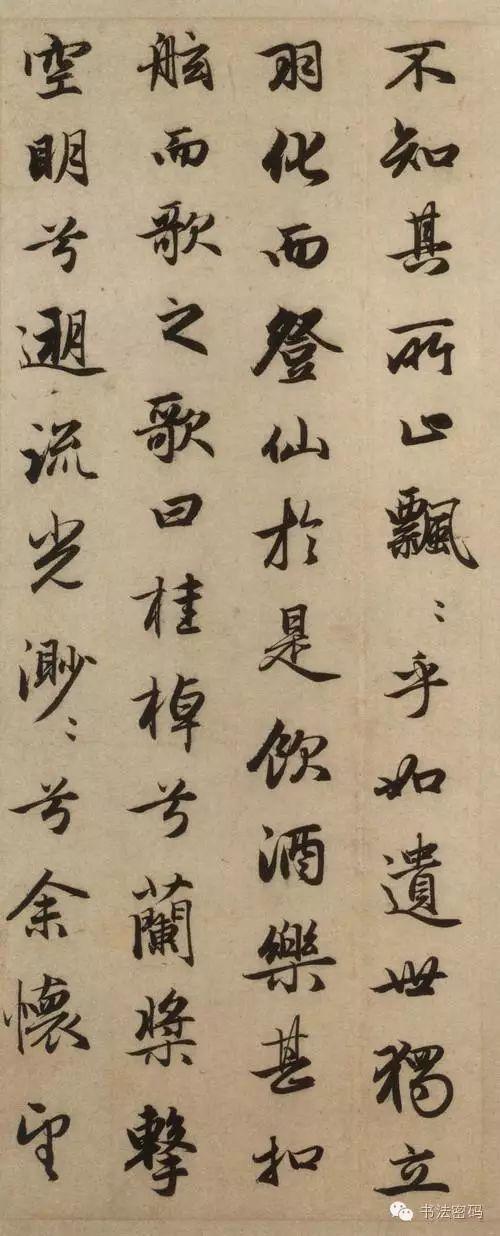 不知其所止飄〻乎如遺世獨立
羽化而登仙於是飲酒樂甚扣
舷而歌之歌曰桂棹兮蘭槳擊
空明兮遡流光渺〻兮余懷望
书法密码